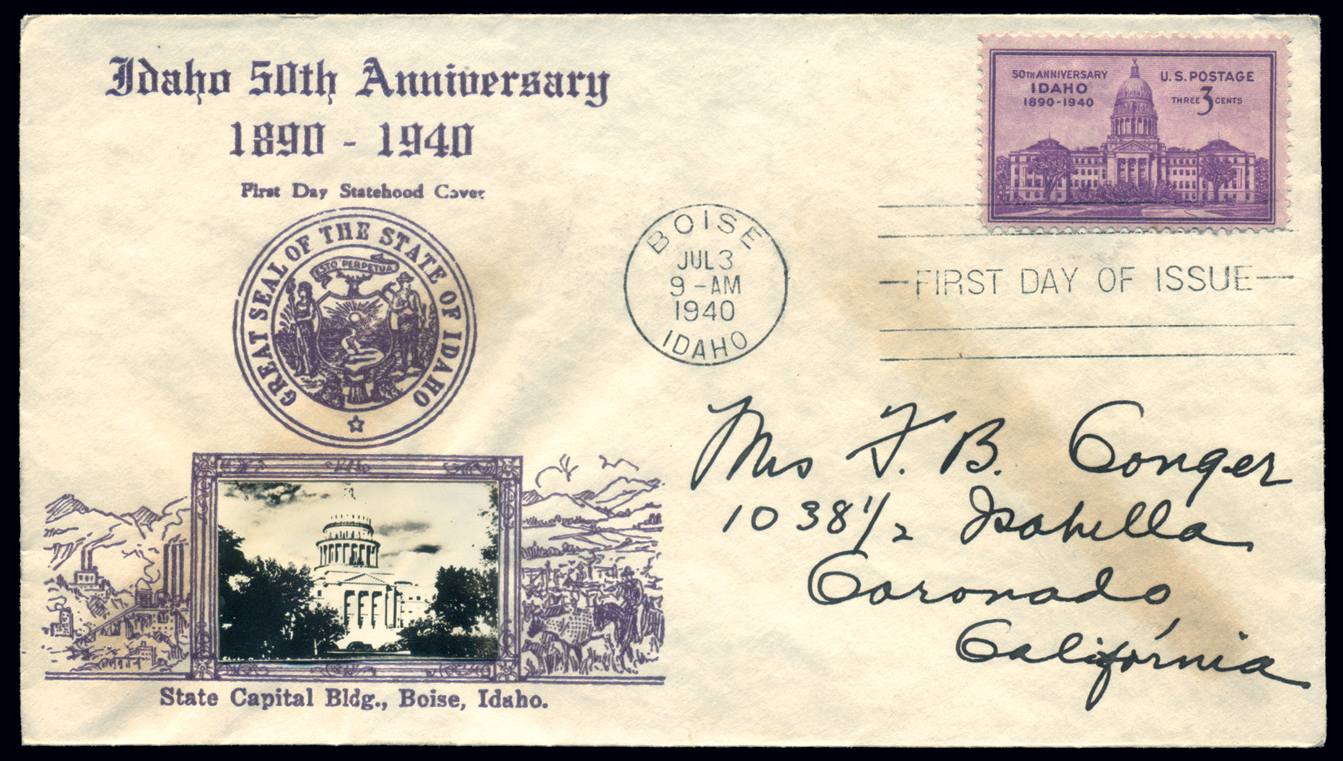 Idaho 50th Anniversary
1890 - 1940
First Day Statehood Cover
GREAT SEAL OF THE STATE OF IDAHO
ESTO PERPETUA
State Capital Bldg., Boise, Idaho.
50TH ANNIVERSARY
IDAHO
1890-1940
U.S. POSTAGE
THREE 3 CENTS
BOISE
JUL 3
9-AM
1940
IDAHO
FIRST DAY OF ISSUE
Mrs F. B. Conger
1038 1/2 Isabella
Coronado
California